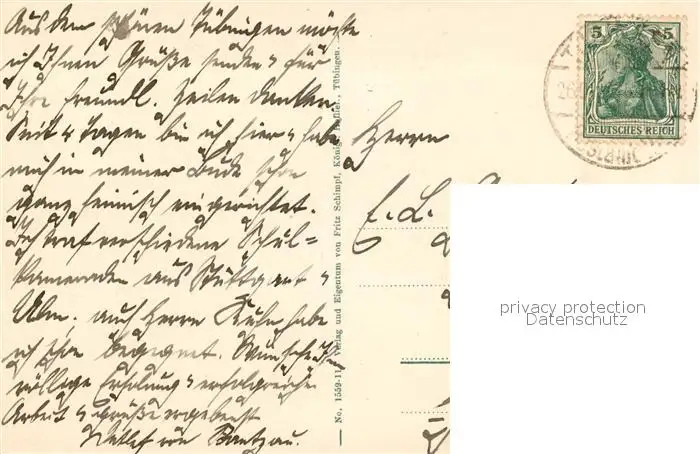 Aus dem schönen Tübingen möchte
ich Ihnen Grüße senden u für
Ihre freundl. Zeilen danken.
Seit 4 Tagen bin ich hier u habe
mich in meiner Bude schon
ganz heimisch eingerichtet.
Ich traf verschiedene Schul-
kameraden aus Stuttgart u
Ulm, auch Herrn Kuhn habe
ich schon begegnet. Wünsche Ihnen
völlige Erholung u erfolgreiche
Arbeit u Grüße ergebenst
Detlef von
No. 1559-11 Verlag und Eigentum von Fritz Schimpf, Tübingen.
5 5
DEUTSCHES REICH
Herrn
E. L.
privacy protection
Datenschutz